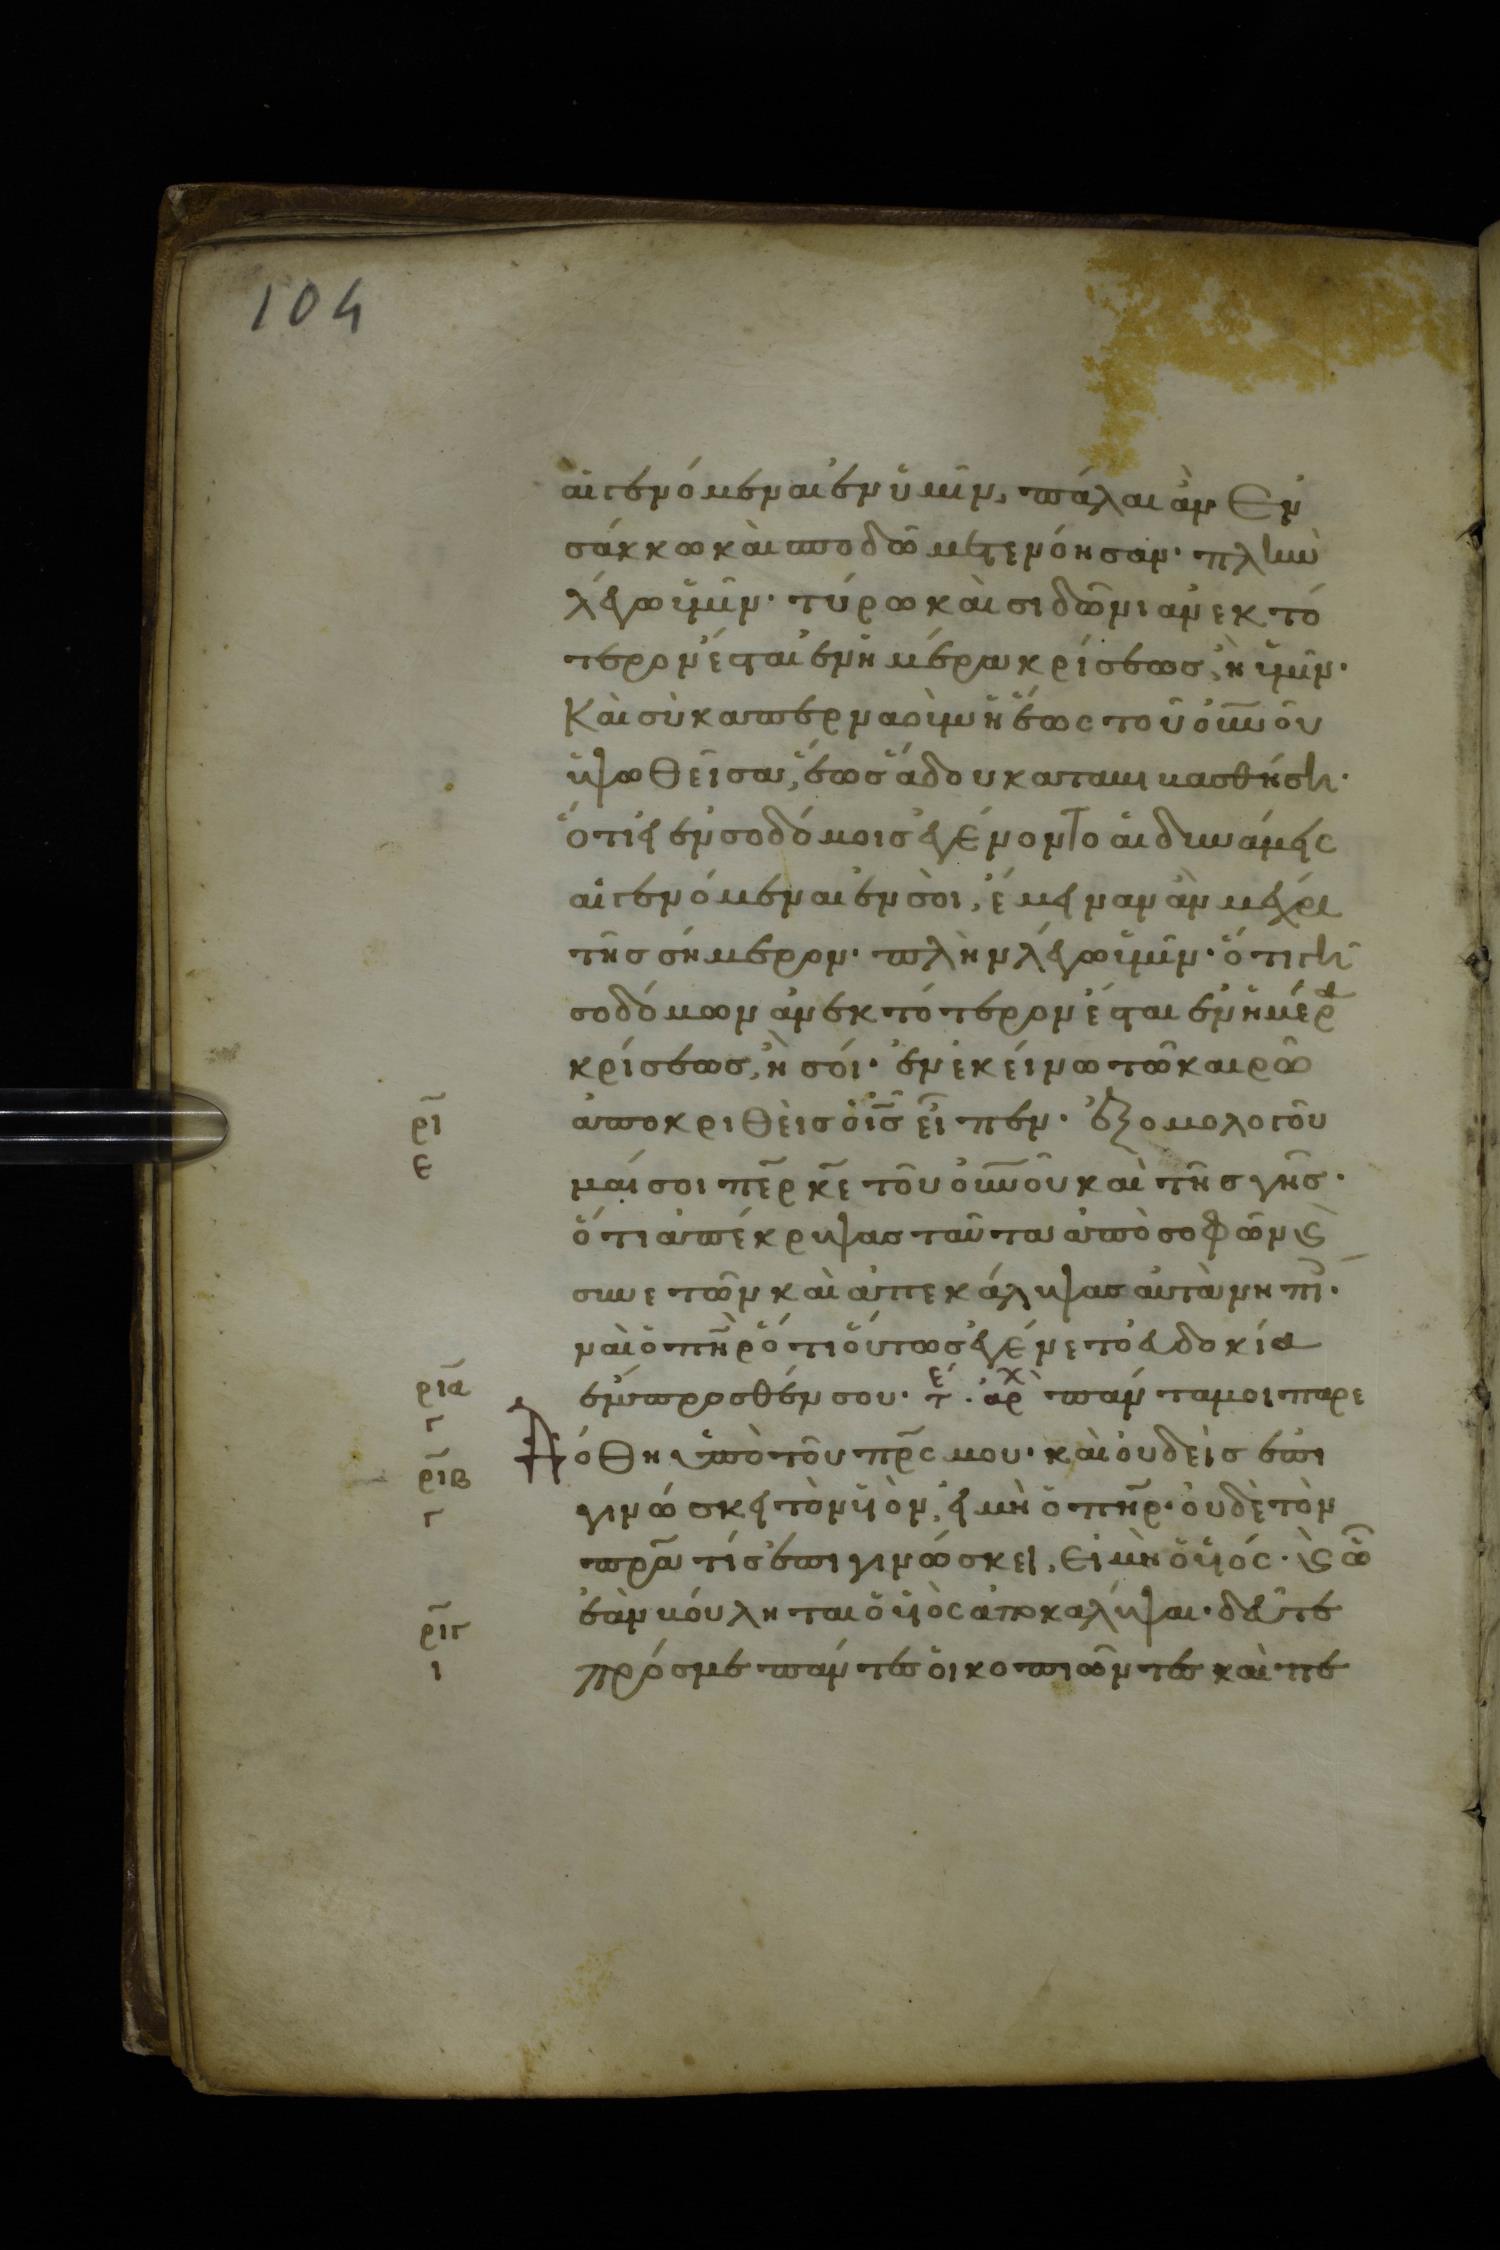 104
αἱ γενόμεναι ἐν ὑμῖν, πάλαι ἂν ἐν
σάκκω καὶ σποδῶ μετενόησαν· πλὴν
λέγω ὑμῖν· τύρω καὶ σιδῶνι ἀνεκτό
τερον ἔσται ἐν ἡμέρα κρίσεως, ἢ ὑμῖν·
Καὶ σὺ καπερναοὺμ ἡ ἕως τοῦ οὐνοῦ
ὑψωθεῖσα, ἕως ἅδου καταβιβασθήση·
ὅτι εἰ ἐν σοδόμοις ἐγένοντο αἱ δυνάμεις
αἱ γενόμεναι ἐν σοὶ, ἔμειναν ἂν μέχρι
τῆς σήμερον· πλὴν λέγω ὑμῖν· ὅτι γῆ
σοδόμων ἀνεκτότερον ἔσται ἐν ἡμέρα
κρίσεως, ἢ σοί· ἐν ἐκείνω τῶ καιρῶ
ρι ἀποκριθεὶς ὁ ις εἶπεν· ἐξομολογοῦ
ε
μαί σοι περ κε τοῦ οὐνοῦ καὶ τῆς γῆς·
ὅτι ἀπέκρυψας ταῦτα ἀπὸ σοφῶν ϗ
συνετῶν καὶ ἀπεκάλυψας αὐτὰ νηπι·
ναὶ ὁ πηρ ὅτι οὕτως ἐγένετο εὐδοκία
ρια ἔμπροσθέν σου· τε· ἀρχ πάντα μοι παρε
γ
δόθη ὑπὸ τοῦ πρς μου· καὶ οὐδεὶς ἐπι
ριβ
γ γινώσκει τὸν υἱὸν, εἰ μὴ ὁ πηρ· οὐδὲ τὸν
πρα τίς ἐπιγινώσκει, εἰ μὴ ὁ υἱός· ϗ ὧ
ριγ ἐὰν βούληται ὁ υἱὸς ἀποκαλύψαι· δεῦτε
ι πρός με πάντες οἱ κοπιῶντες καὶ πε